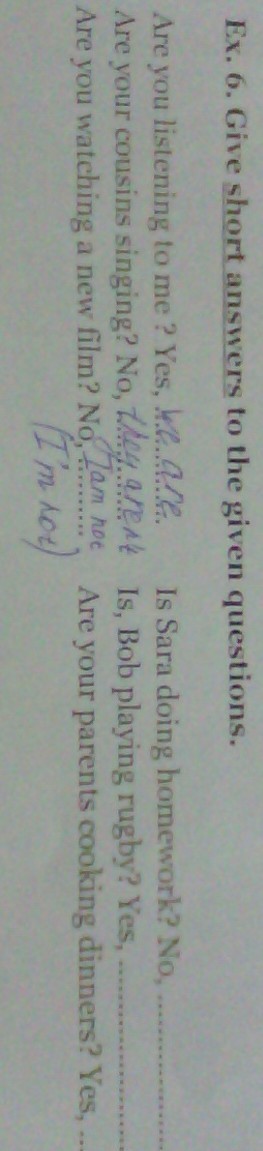 Ex. 6. Give short answers to the given questions.
Are you listening to me ? Yes, we are. Is Sara doing homework? No, ....................
Are your cousins singing? No, they aren't Is, Bob playing rugby? Yes, ....................
Are you watching a new film? No, I am not Are your parents cooking dinners? Yes, ...
(I'm not)